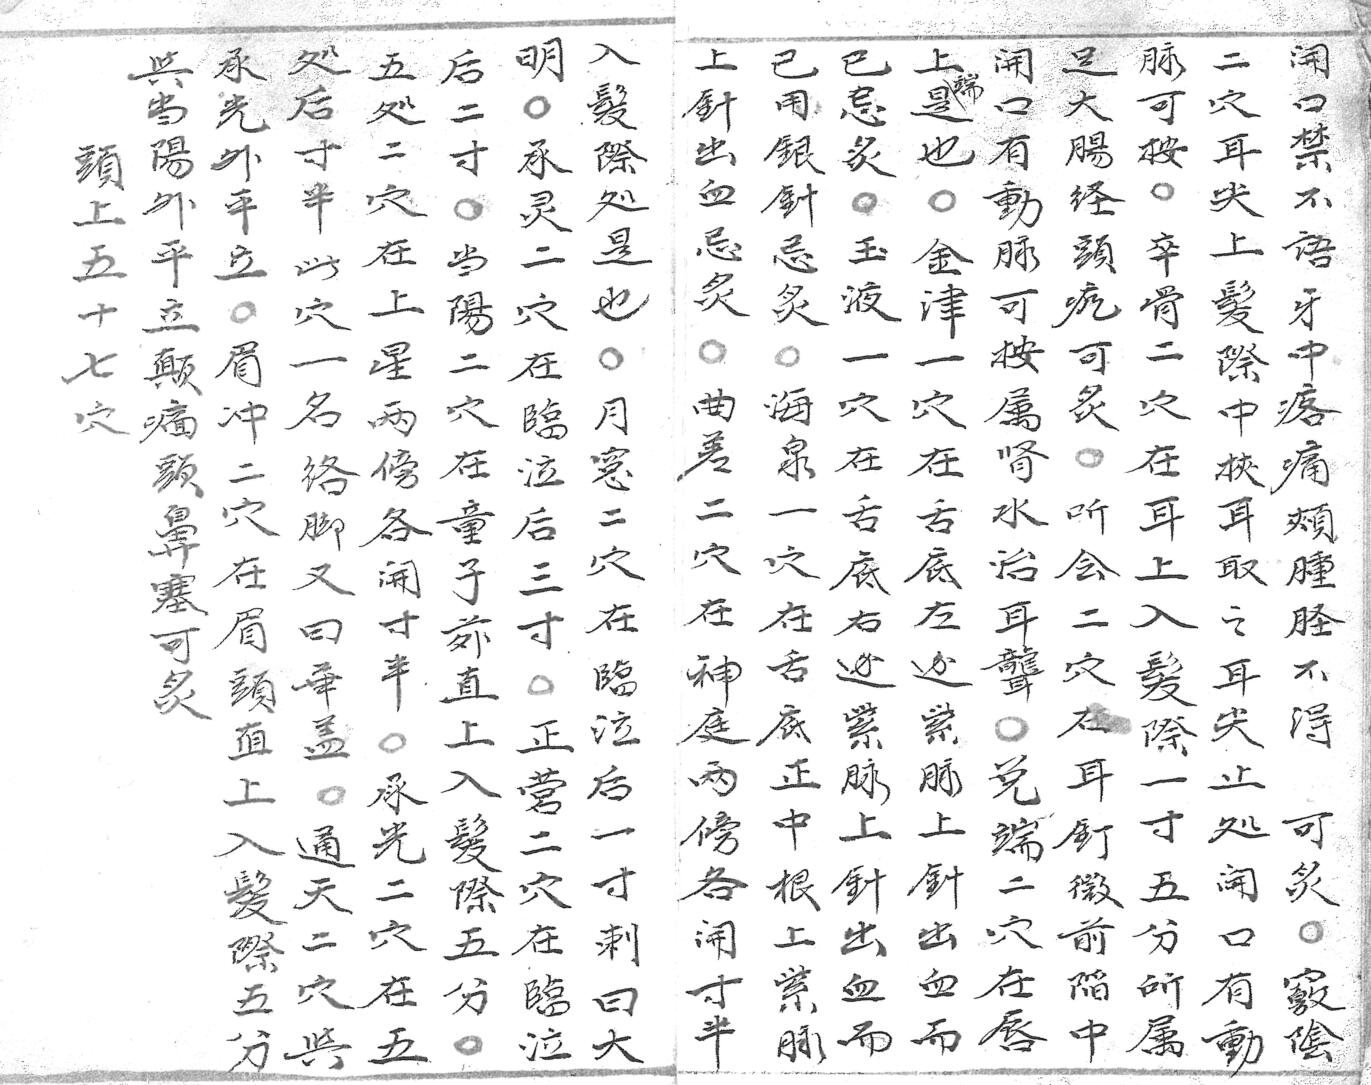 開口禁不語牙中疼痛頰腫胫不得 可灸○竅陰
二穴耳尖上髮際中挾耳取之耳尖止処開口有動
脉可按○卒骨二穴在耳上入髮際一寸五分所属
足大腸経頭疣可灸○听会二穴在耳釘微前陷中
開口有動脉可按属肾水治耳聾○兑端二穴在唇
上端是也○金津一穴在舌底左边紫脉上針出血而
已忌灸○玉液一穴在舌底右边紫脉上針出血而
已用銀針忌灸○海泉一穴在舌底正中根上紫脉
上針出血忌灸○曲差二穴在神庭两傍各開寸半
入髮際処是也○月窓二穴在臨泣后一寸刺曰大
明○承灵二穴在臨泣后三寸○正营二穴在臨泣
后二寸○当陽二穴在童子茆直上入髮際五分○
五処二穴在上星两傍各開寸半○承光二穴在五
処后寸半此穴一名絡脚又曰華盖○通天二穴与
承光外平立○眉冲二穴在眉頭直上入髮際五分
与当陽外平立颠痛頭鼻塞可灸
頭上五十七穴